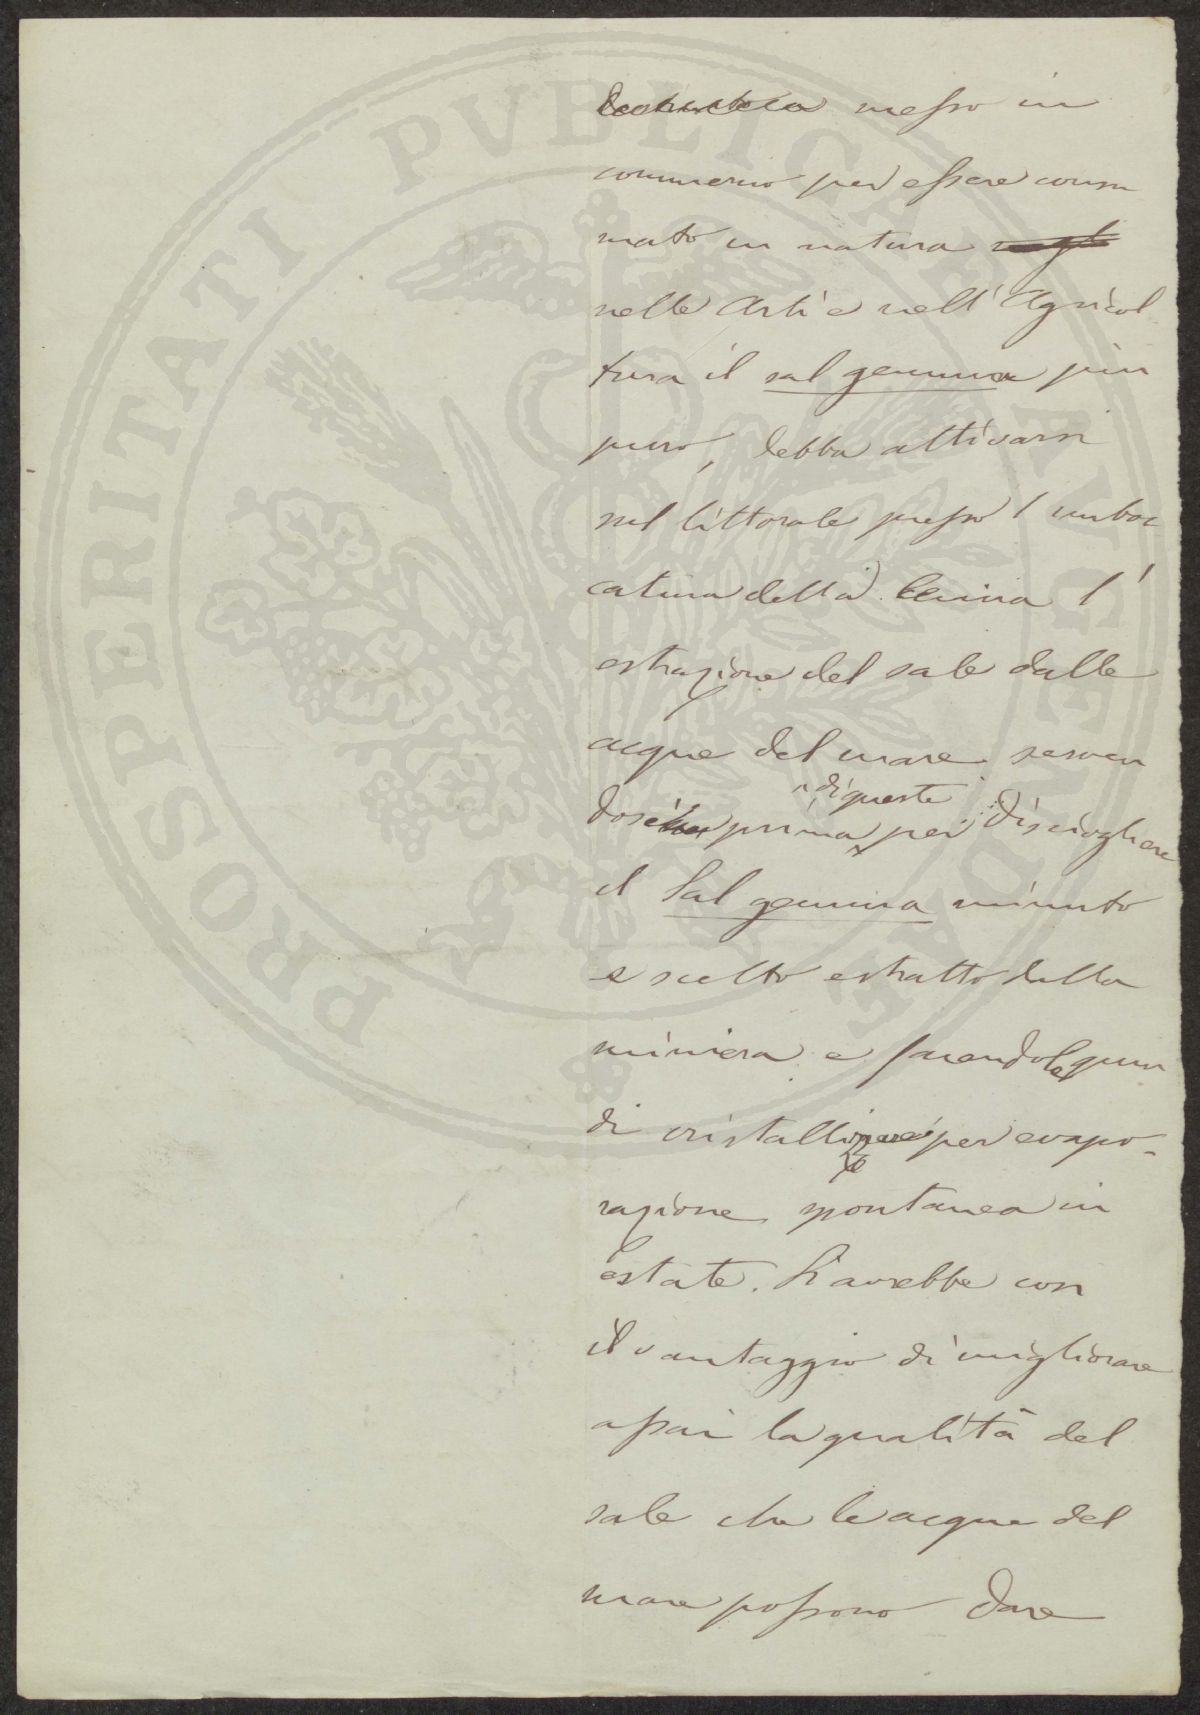 messo in
commercio per essere consu
mato in natura
nelle Arti e nell'Agricol
tura il sal gemma piu
puro, debba attivarsi
nel littorale presso l'imboc
catura della Cecina l'
estrazione del sale dalle
acque del mare serven
di queste
dosi prima per disciogliere
il Sal gemma minuto
e scelto estratto dalla
miniera e facendole quin
di cristallizzare per evapo-
razione spontanea in
estate. Si avrebbe con
il vantaggio di migliorare
assai la qualità del
sale che le acque del
mare possono dare
PROSPERITATI PVBLICAE AVGENDAE